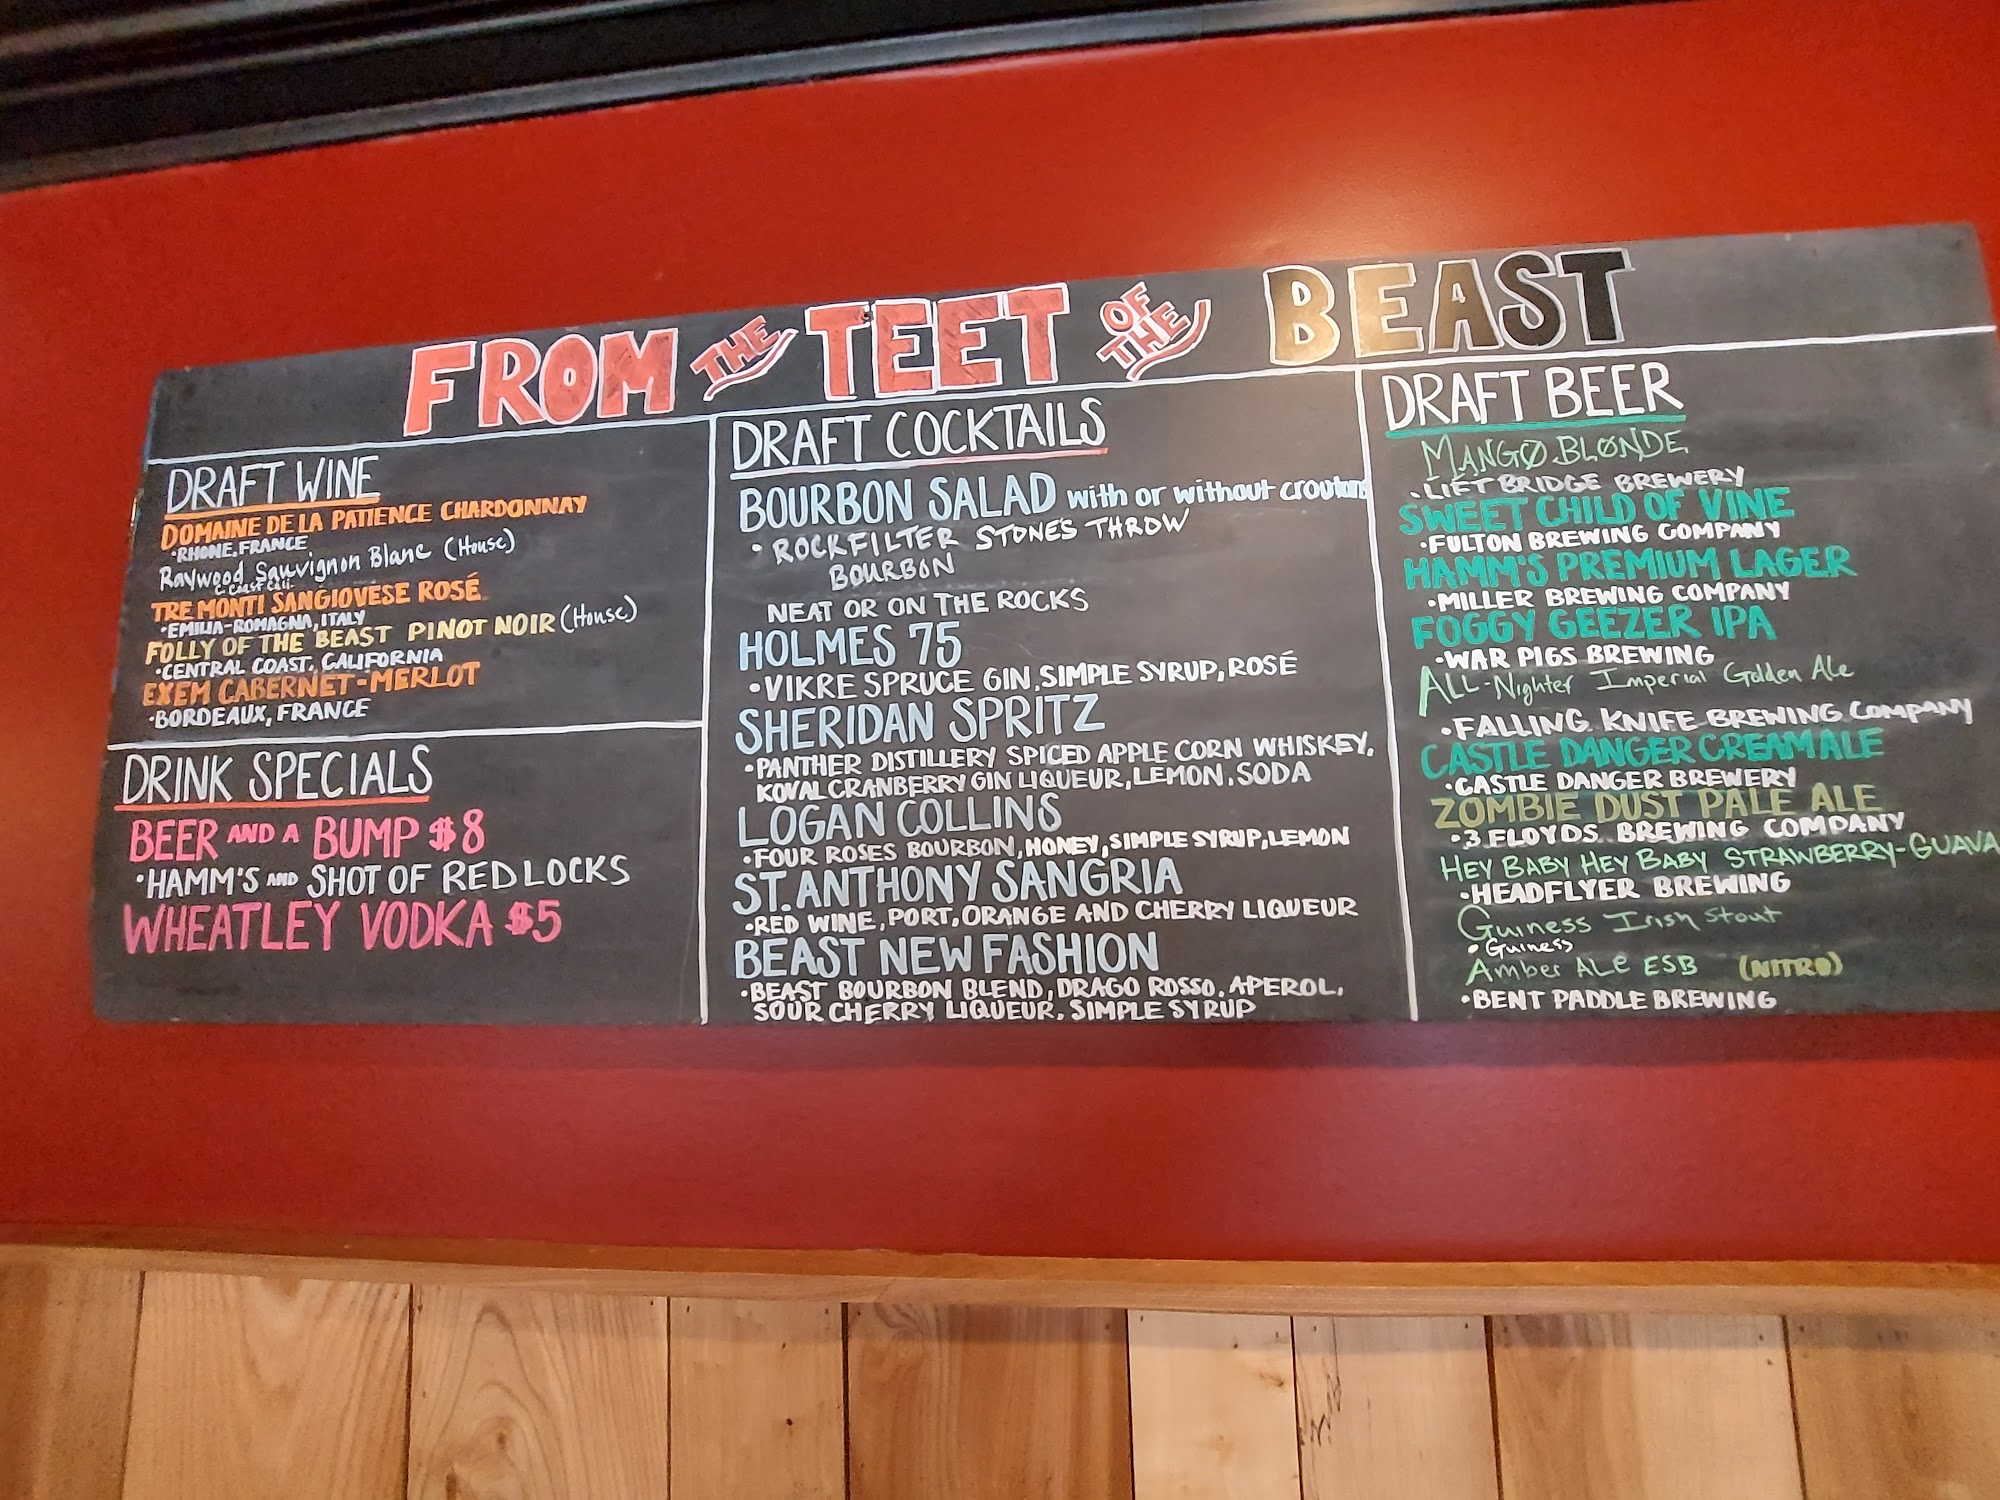 FROM THE TEET OF THE BEAST
DRAFT WINE
DOMAINE DE LA PATIENCE CHARDONNAY
•RHONE, FRANCE
Raywood Sauvignon Blanc (House)
C. Coast Cali.
TRE MONTI SANGIOVESE ROSÉ
•EMILIA-ROMAGNA, ITALY
FOLLY OF THE BEAST PINOT NOIR (House)
•CENTRAL COAST, CALIFORNIA
EXEM CABERNET-MERLOT
•BORDEAUX, FRANCE
DRINK SPECIALS
BEER AND A BUMP $8
•HAMM'S AND SHOT OF REDLOCKS
WHEATLEY VODKA $5
DRAFT COCKTAILS
BOURBON SALAD with or without croutons
•ROCKFILTER STONE'S THROW
BOURBON
NEAT OR ON THE ROCKS
HOLMES 75
•VIKRE SPRUCE GIN, SIMPLE SYRUP, ROSÉ
SHERIDAN SPRITZ
•PANTHER DISTILLERY SPICED APPLE CORN WHISKEY,
KOVAL CRANBERRY GIN LIQUEUR, LEMON, SODA
LOGAN COLLINS
•FOUR ROSES BOURBON, HONEY, SIMPLE SYRUP, LEMON
ST. ANTHONY SANGRIA
•RED WINE, PORT, ORANGE AND CHERRY LIQUEUR
BEAST NEW FASHION
•BEAST BOURBON BLEND, DRAGO ROSSO, APEROL,
SOUR CHERRY LIQUEUR, SIMPLE SYRUP
DRAFT BEER
MANGO BLONDE
•LIFT BRIDGE BREWERY
SWEET CHILD OF VINE
•FULTON BREWING COMPANY
HAMM'S PREMIUM LAGER
•MILLER BREWING COMPANY
FOGGY GEEZER IPA
•WAR PIGS BREWING
ALL-Nighter Imperial Golden Ale
•FALLING KNIFE BREWING COMPANY
CASTLE DANGER CREAM ALE
•CASTLE DANGER BREWERY
ZOMBIE DUST PALE ALE
•3 FLOYDS BREWING COMPANY
HEY BABY HEY BABY STRAWBERRY-GUAVA
•HEADFLYER BREWING
Guiness Irish Stout
•Guiness
Amber ALe ESB (NITRO)
•BENT PADDLE BREWING